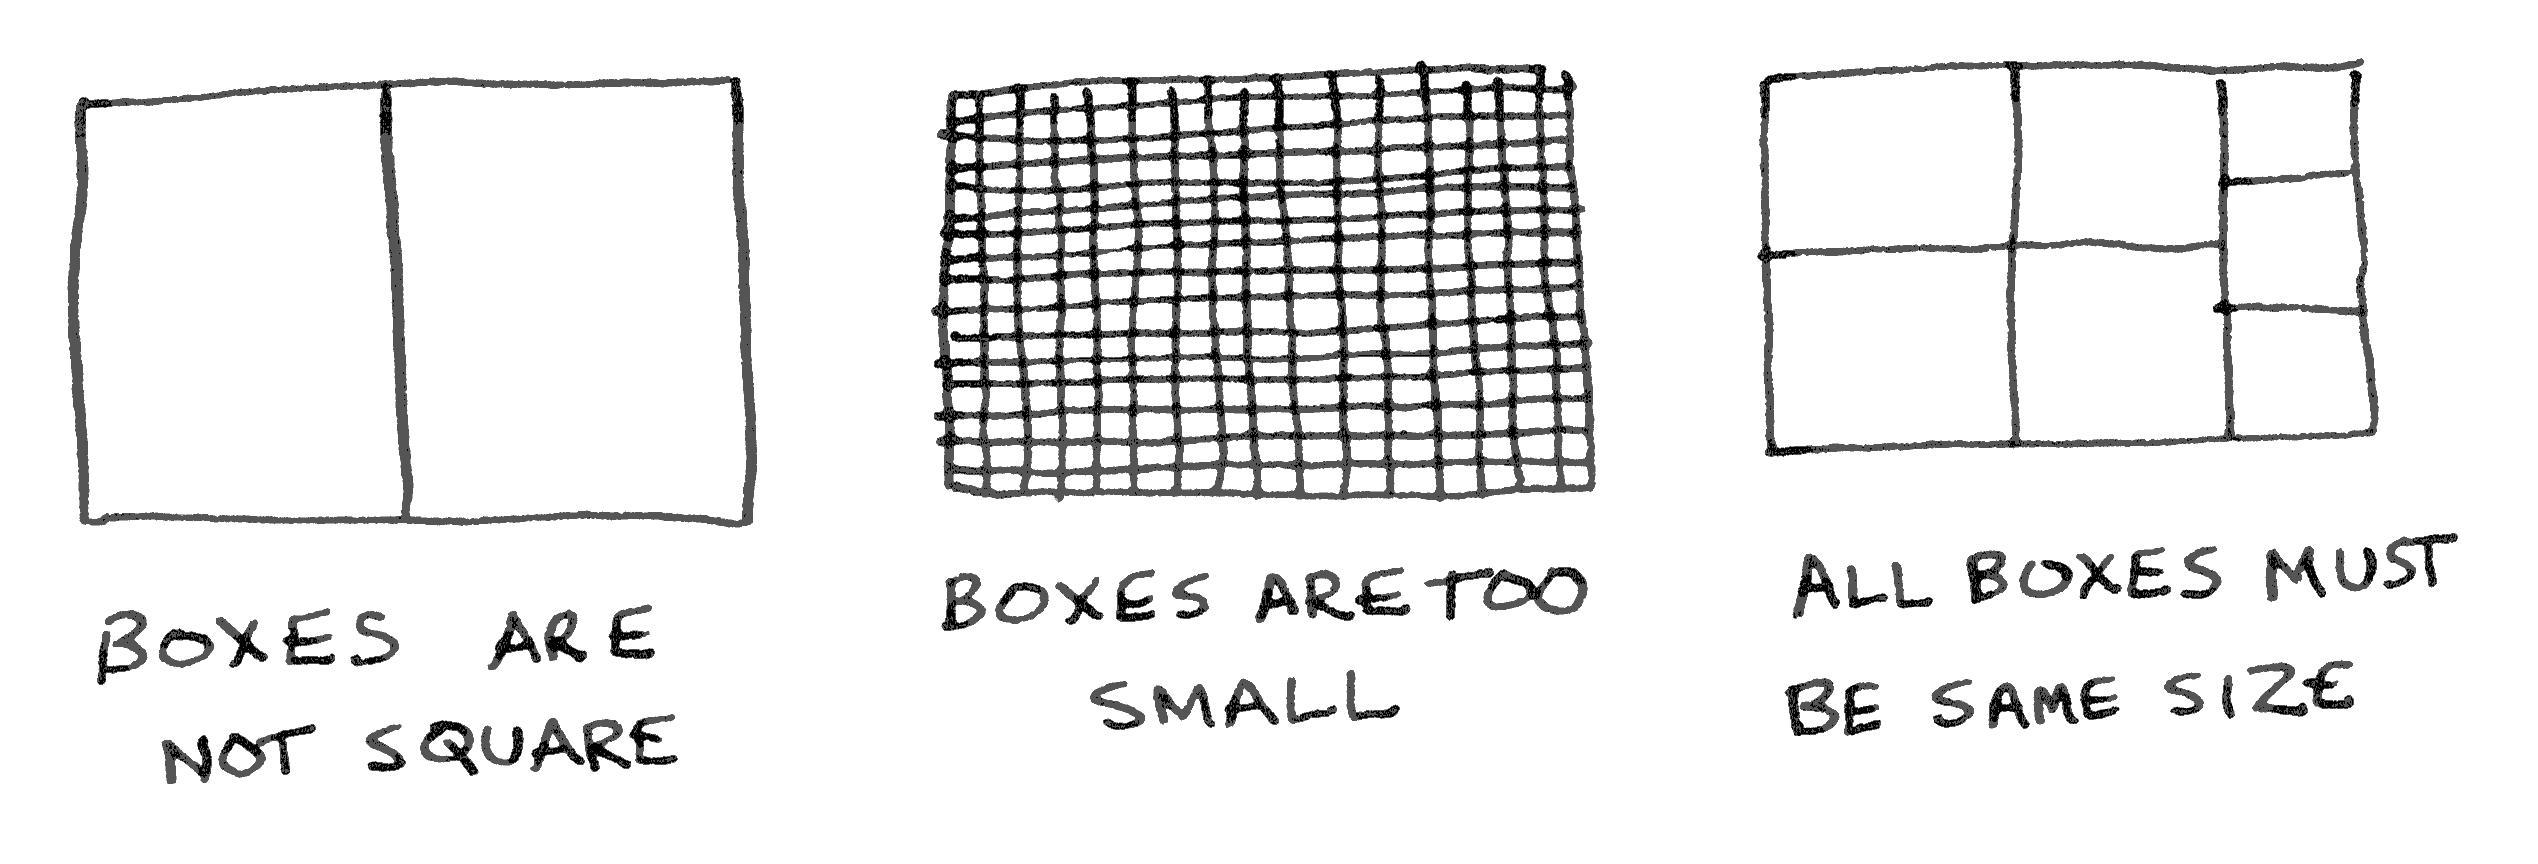 BOXES ARE
NOT SQUARE
BOXES ARE TOO
SMALL
ALL BOXES MUST
BE SAME SIZE